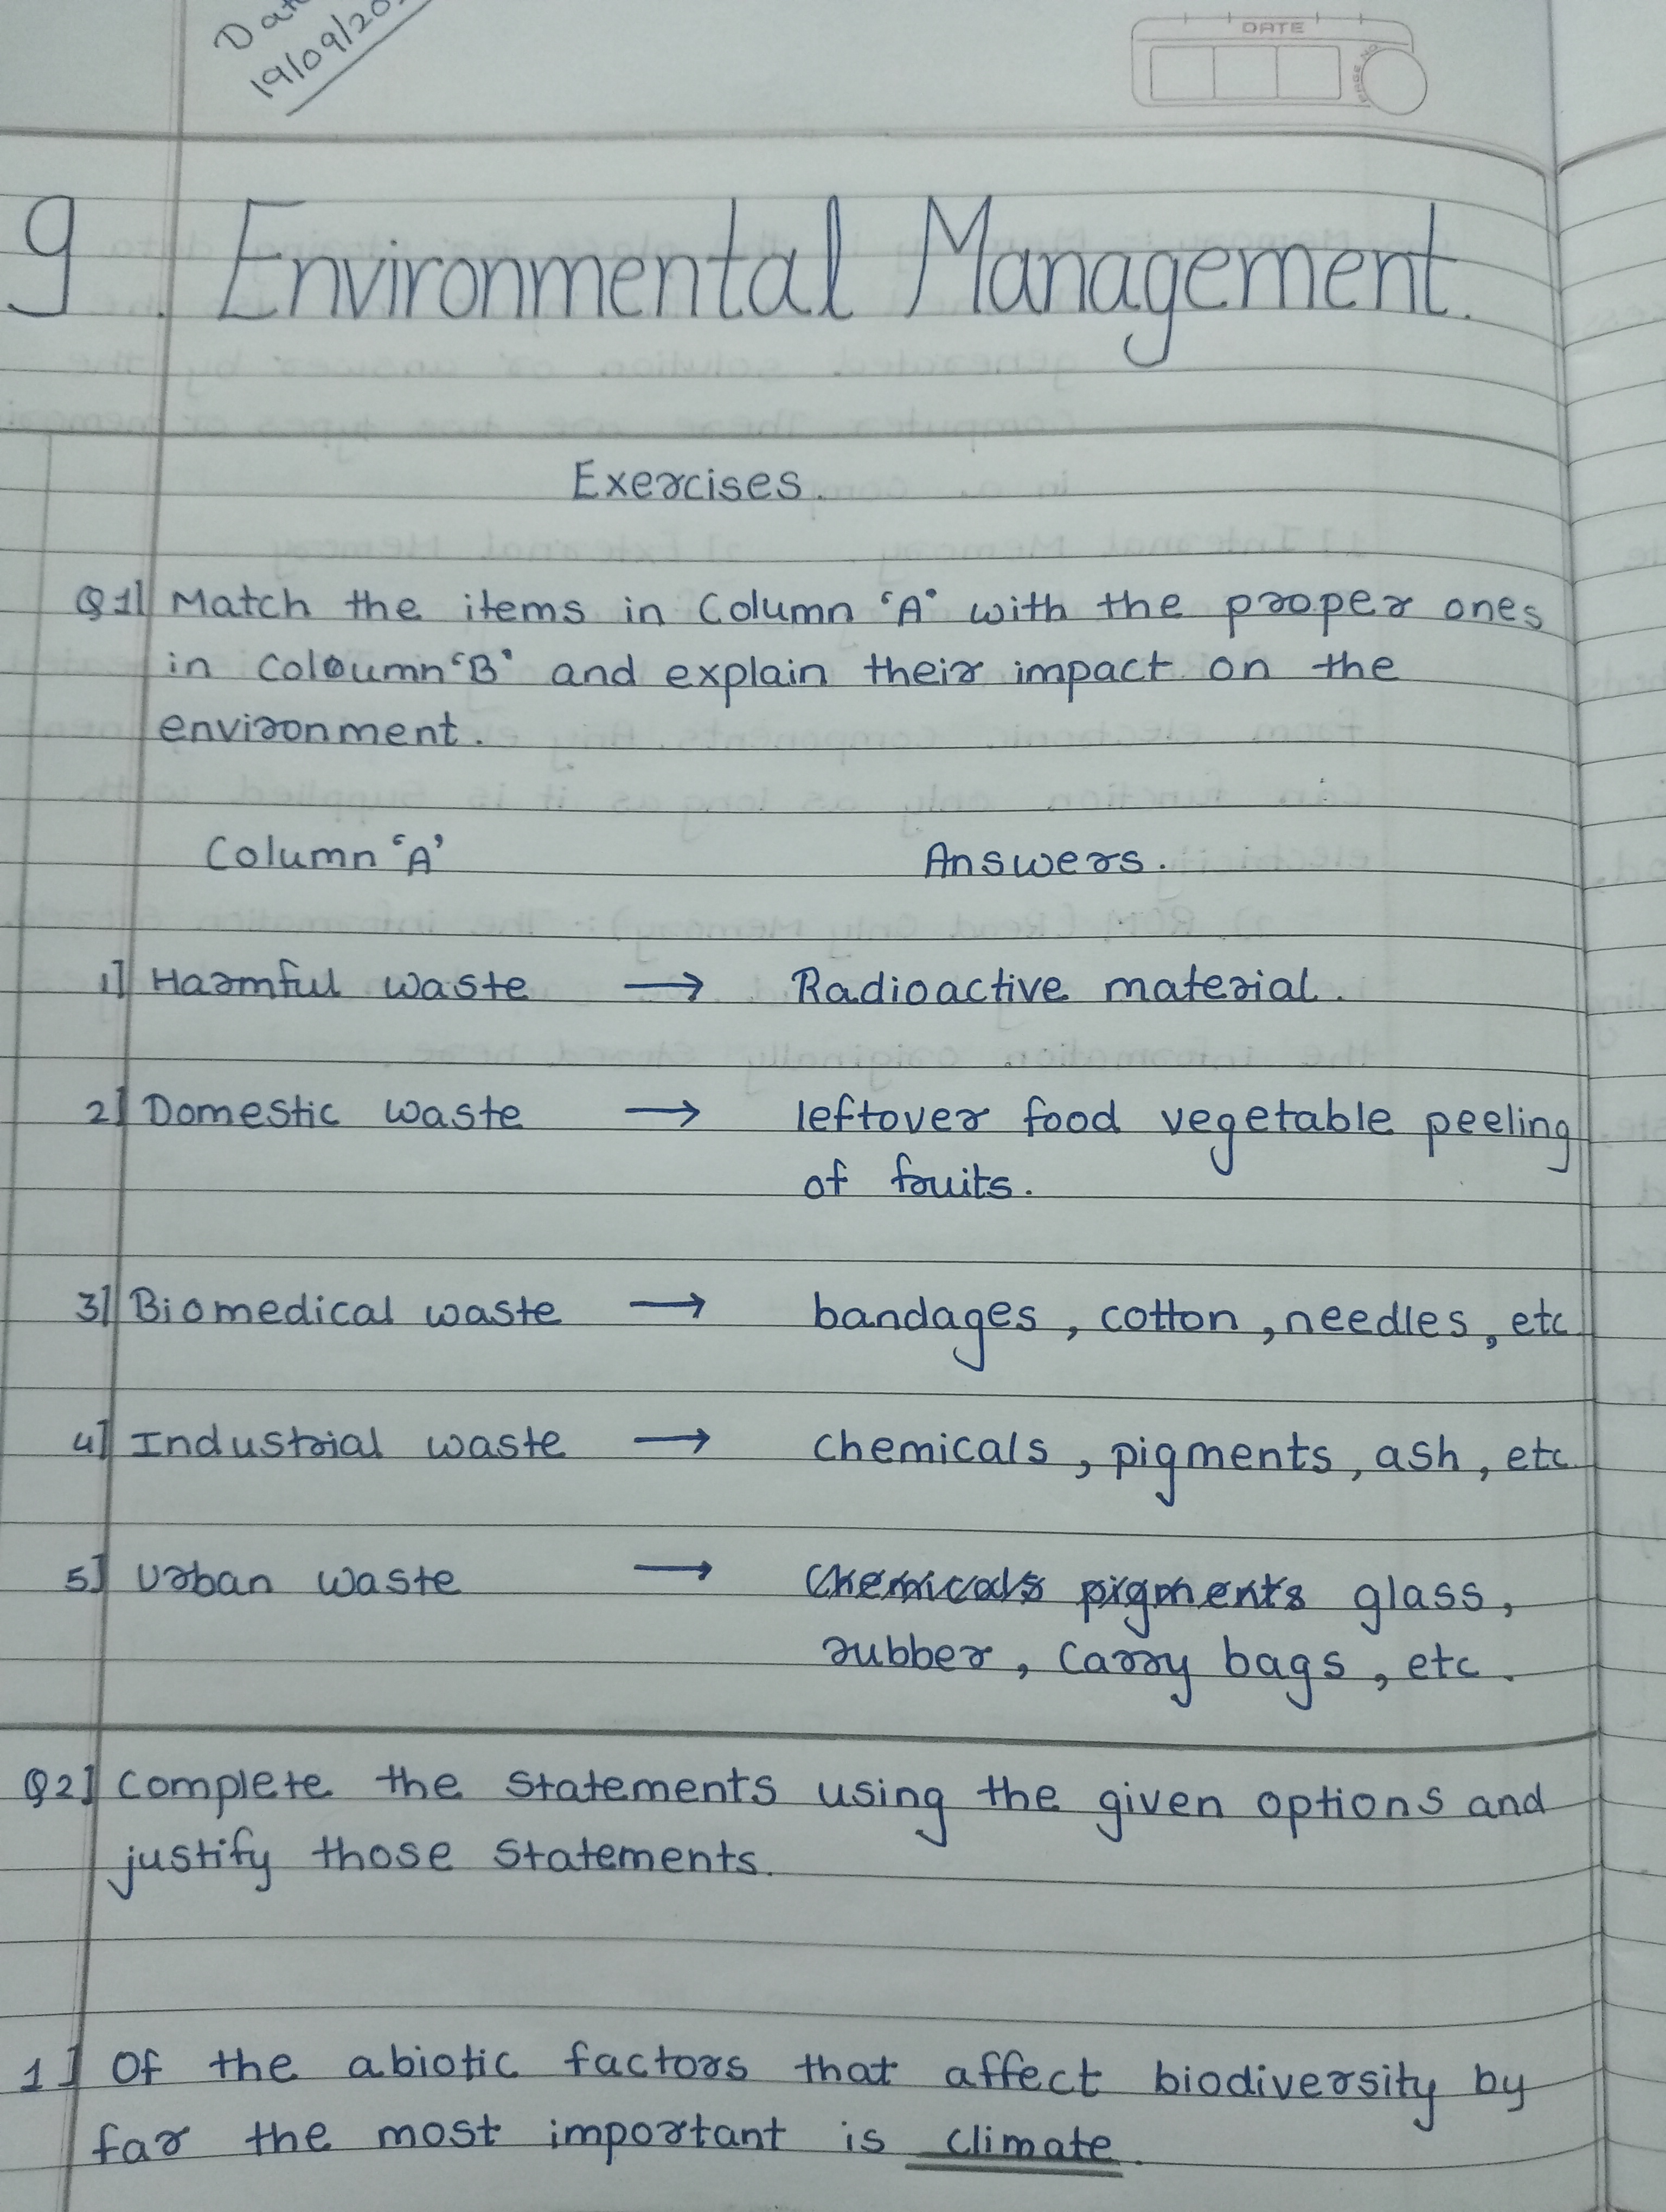 19/09/20
DATE
PAGE NO
9. Environmental Management.
Exercises.
Q1] Match the items in Column 'A' with the proper ones
in coloumn 'B' and explain their impact on the
environment.
Column 'A' Answers.
1] Harmful waste → Radioactive material.
2] Domestic waste → leftover food vegetable peeling
of fruits.
3] Biomedical waste → bandages, cotton, needles, etc
4] Industrial waste → chemicals, pigments, ash, etc.
5] Urban waste → chemicals pigments glass,
rubber, carry bags, etc.
Q2] complete the statements using the given options and
justify those statements.
1] Of the abiotic factors that affect biodiversity by
far the most important is climate.